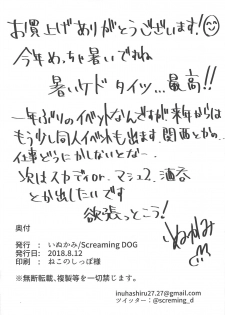 お買上げありがとうございます!
今年めっちゃ暑いですね
暑いケドタイツ...最高!!
一年ぶりのイベントなんですが来年からは
もう少し同人イベントも出ます。関西とか…
仕事どうにかしないとなー
次はスカディor、マシュ2、酒呑
とか出したいです
欲張ってこう!
いぬかみ
奥付
発行 : いぬかみ/Screaming DOG
発行日: 2018.8.12
印刷 : ねこのしっぽ様
※無断転載、複製等を一切禁じます。
inuhashiru27.27@gmail.com
ツイッター:@screming_d